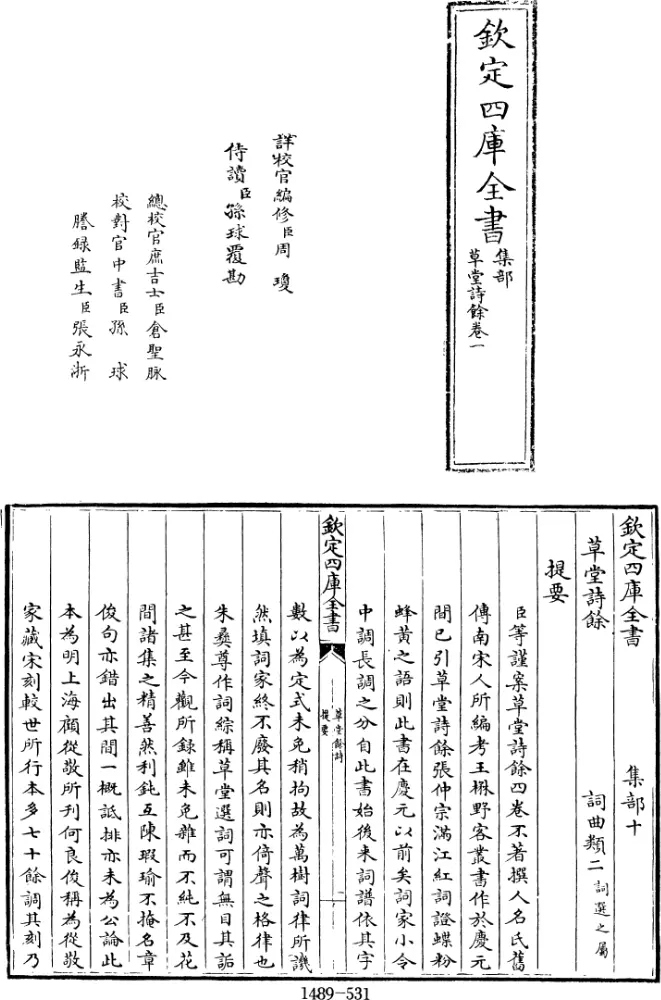 欽定四庫全書
集部
草堂詩餘卷一
詳校官編修臣周瓊
侍讀臣孫球覆勘
總校官庶吉士臣倉聖脉
校對官中書臣孫球
謄録監生臣張永浙
欽定四庫全書 集部十
草堂詩餘 詞曲類二 詞選之屬
提要
臣等謹案草堂詩餘四卷不著撰人名氏舊
傳南宋人所編考王楙野客叢書作於慶元
間已引草堂詩餘張仲宗滿江紅詞證蝶粉
蜂黄之語則此書在慶元以前矣詞家小令
中調長調之分自此書始後来詞譜依其字
欽定四庫全書
草堂詩餘
提要
一
數以為定式未免稍拘故為萬樹詞律所譏
然填詞家終不廢其名則亦倚聲之格律也
朱彝尊作詞綜稱草堂選詞可謂無目其詬
之甚至今觀所録雖未免雜而不純不及花
間諸集之精善然利鈍互陳瑕瑜不掩名章
俊句亦錯出其間一概詆排亦未為公論此
本為明上海顧從敬所刊何良俊稱為從敬
家藏宋刻較世所行本多七十餘調其刻乃
1489-531